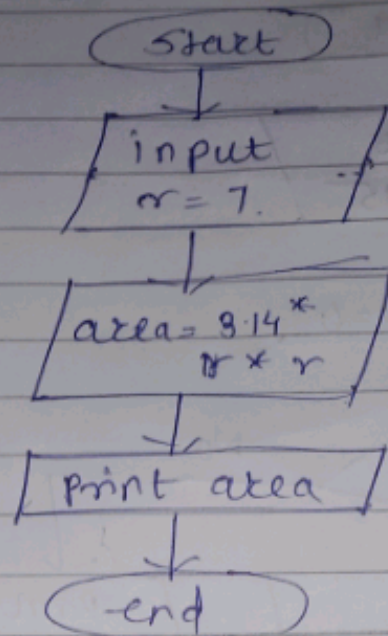 Start
input
r = 7.
area = 3.14 *
r * r
Print area
end